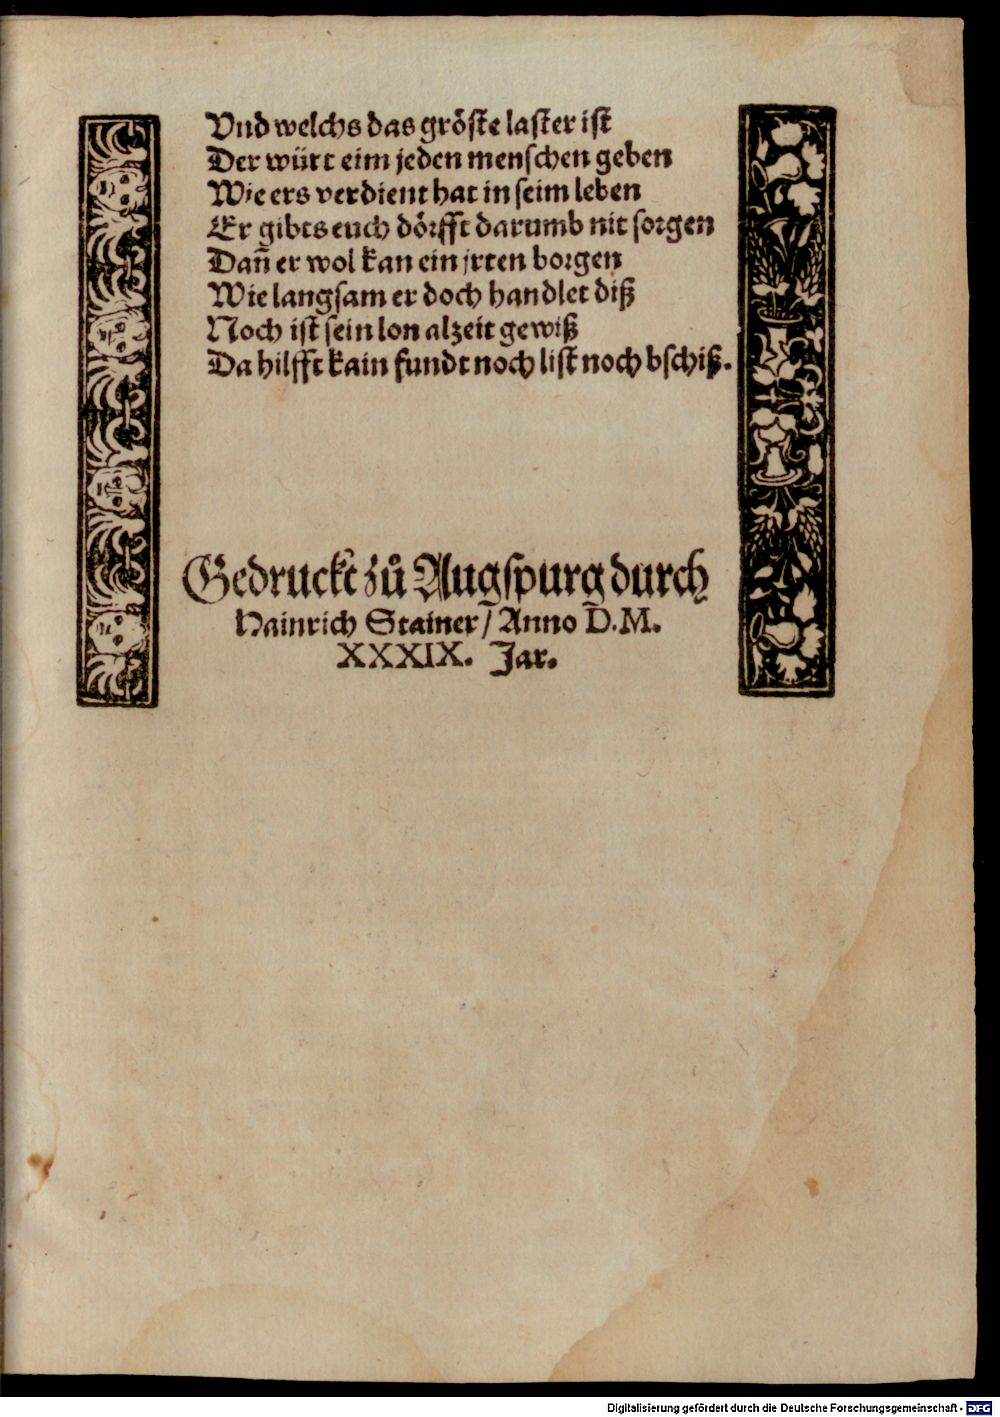 Vnd welchs das gröste laster ist
Der würt eim jeden menschen geben
Wie ers verdient hat in seim leben
Er gibts euch dörfft darumb nit sorgen
Dañ er wol kan ein jrten borgen
Wie langsam er doch handlet diß
Noch ist sein lon alzeit gewiß
Da hilfft kain fundt noch list noch bschiß.
Gedruckt zů Augspurg durch
Hainrich Stainer/ Anno D.M.
XXXIX. Jar.
Digitalisierung gefördert durch die Deutsche Forschungsgemeinschaft - DFG